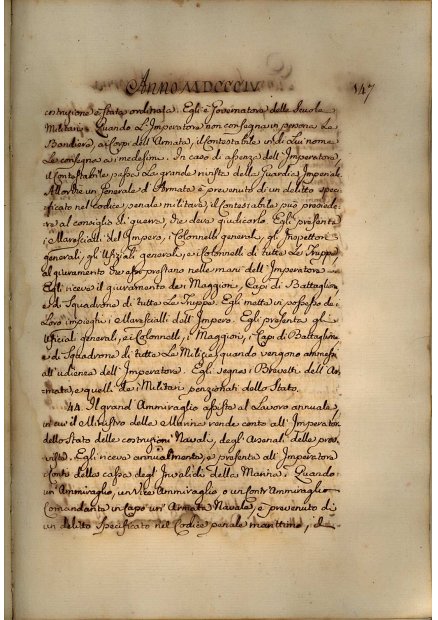 Anno MDCCCIV
147
costruzione è stata ordinata. Egli è Governatore delle Scuole
Militari. Quando L'Imperatore non consegna in persona Le
Bandiere, a' Corpi dell'Armata, il Contestabile in di Lui nome
Le consegna a' medesimi. In caso di assenza dell'Imperatore,
il Contestabile passa La grande rivista della Guardia Imperiale.
Allorchè un Generale d'Armata è prevenuto di un delitto speci-
ficato nel Codice penale militare, il Contestabile può presede-
re al consiglio di guerra, che deve giudicarlo. Egli presenta
i Marescialli del Impero, i Colonnelli generali, gli Inspettori
generali, gli Ufiziali generali, e i Colonnelli di tutte Le Truppe
al giuramento che essi prestano nelle mani dell'Imperatore.
Egli riceve il giuramento de' Maggiori, Capi di Battaglione,
e di Squadrone di tutte Le Truppe. Egli mette in possesso de'
Loro impieghi i Marescialli dell'Impero. Egli presenta gli
Ufiziali generali, ei Colonnelli, i Maggiori, i Capi di Battaglione
e di Squadrone di tutte Le Milizie, quando vengono ammessi
all'udienza dell'Imperatore. Egli segna i Brevetti dell'Ar-
mata, e quelli de' Militari pensionati dello Stato.
44. Il grand'Ammiraglio assiste al Lavoro annuale,
in cui il Ministro della Marina rende conto all'Imperatore
dello Stato delle costruzioni Navali, degl'Arsenali, delle prov-
viste. Egli riceve annualmente, e presenta all'Imperatore
i Conti della cassa degl'Invalidi della Marina. Quando
un'Ammiraglio, un Vice Ammiraglio o un Contr'Ammiraglio
Comandante in Capo un'Armata Navale, è prevenuto di
un delitto specificato nel Codice penale marittimo, il